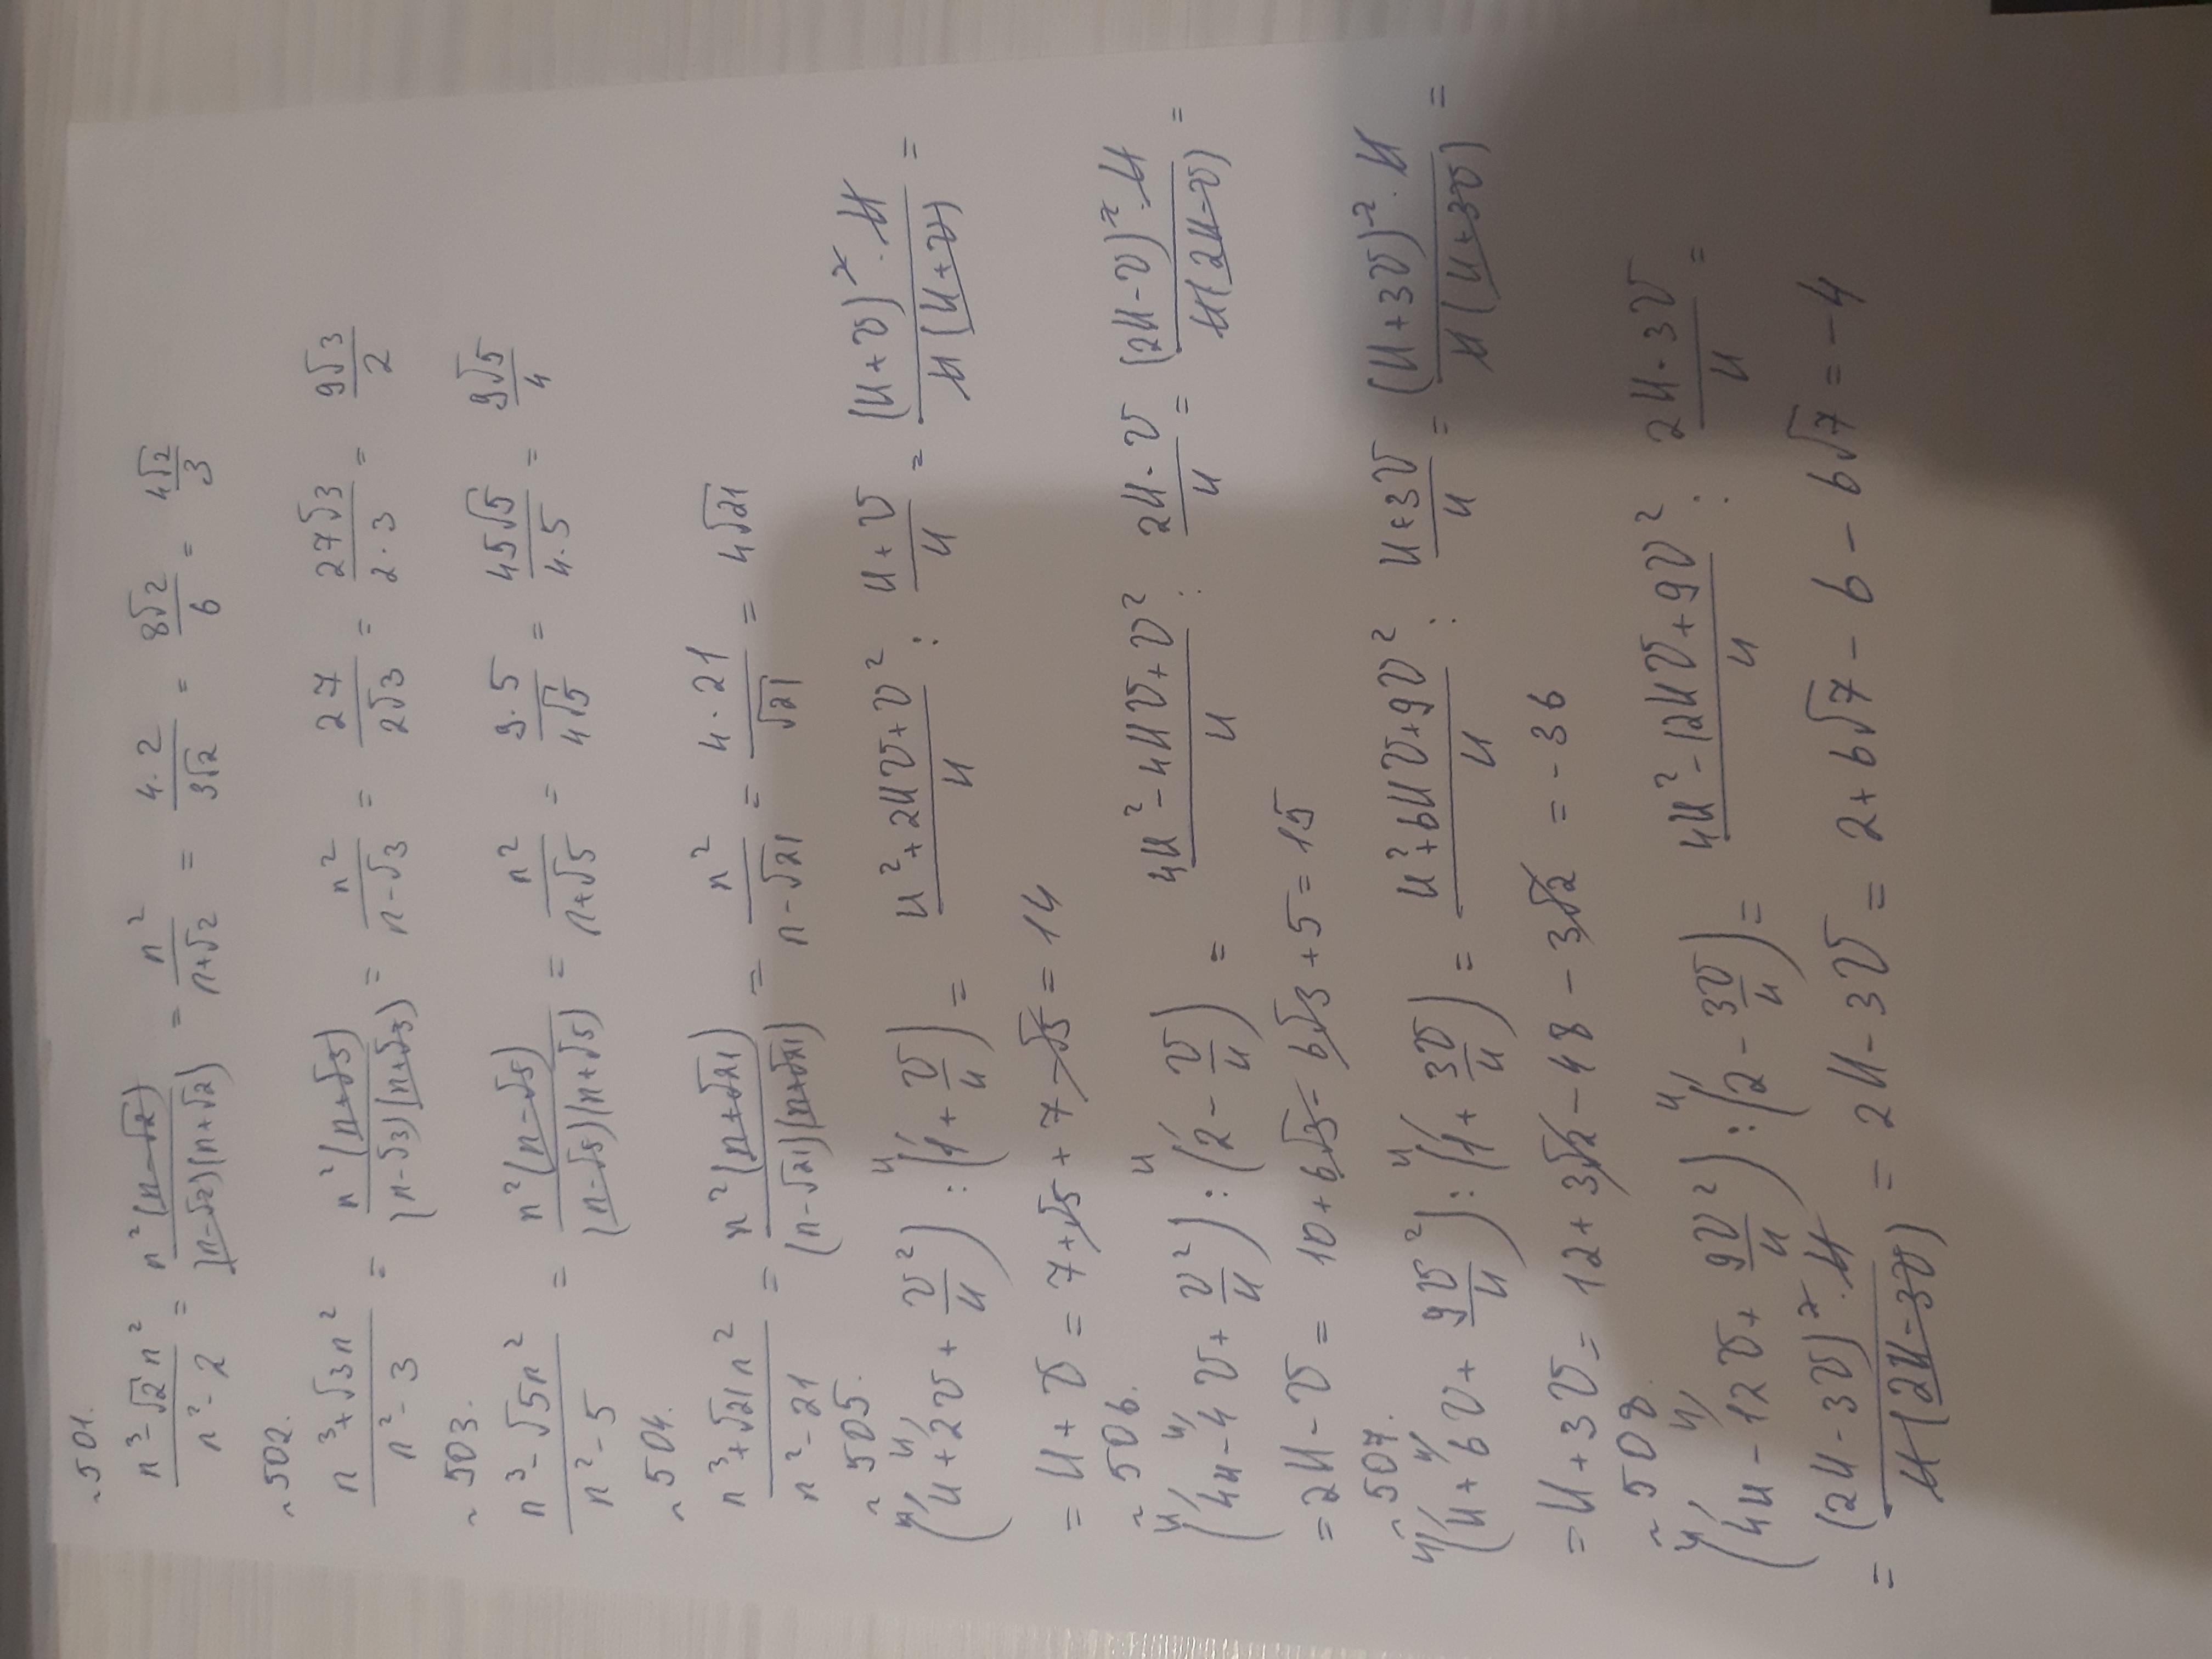 ~501.
(n³-√2n²)/(n²-2) = (n²(n-√2))/((n-√2)(n+√2)) = n²/(n+√2) = (4·2)/(3√2) = 8√2/6 = 4√2/3
~502.
(n³+√3n²)/(n²-3) = (n²(n+√3))/((n-√3)(n+√3)) = n²/(n-√3) = 27/(2√3) = 27√3/(2·3) = 9√3/2
~503.
(n³-√5n²)/(n²-5) = (n²(n-√5))/((n-√5)(n+√5)) = n²/(n+√5) = (9·5)/(4√5) = 45√5/(4·5) = 9√5/4
~504.
(n³+√21n²)/(n²-21) = (n²(n+√21))/((n-√21)(n+√21)) = n²/(n-√21) = (4·21)/√21 = 4√21
~505.
(u+2v+v²/u):(1+v/u) = (u²+2uv+v²)/u : (u+v)/u = ((u+v)²·u)/(u(u+v)) =
= u+v = 7+√5+7-√5 = 14
~506.
(4u-4v+v²/u):(2-v/u) = (4u²-4uv+v²)/u : (2u-v)/u = ((2u-v)²·u)/(u(2u-v)) =
= 2u-v = 10+6√3-6√3+5 = 15
~507.
(u+6v+9v²/u):(1+3v/u) = (u²+6uv+9v²)/u : (u+3v)/u = ((u+3v)²·u)/(u(u+3v)) =
= u+3v = 12+3√2-48-3√2 = -36
~508.
(4u-12v+9v²/u):(2-3v/u) = (4u²-12uv+9v²)/u : (2u-3v)/u =
= ((2u-3v)²·u)/(u(2u-3v)) = 2u-3v = 2+6√7-6-6√7 = -4